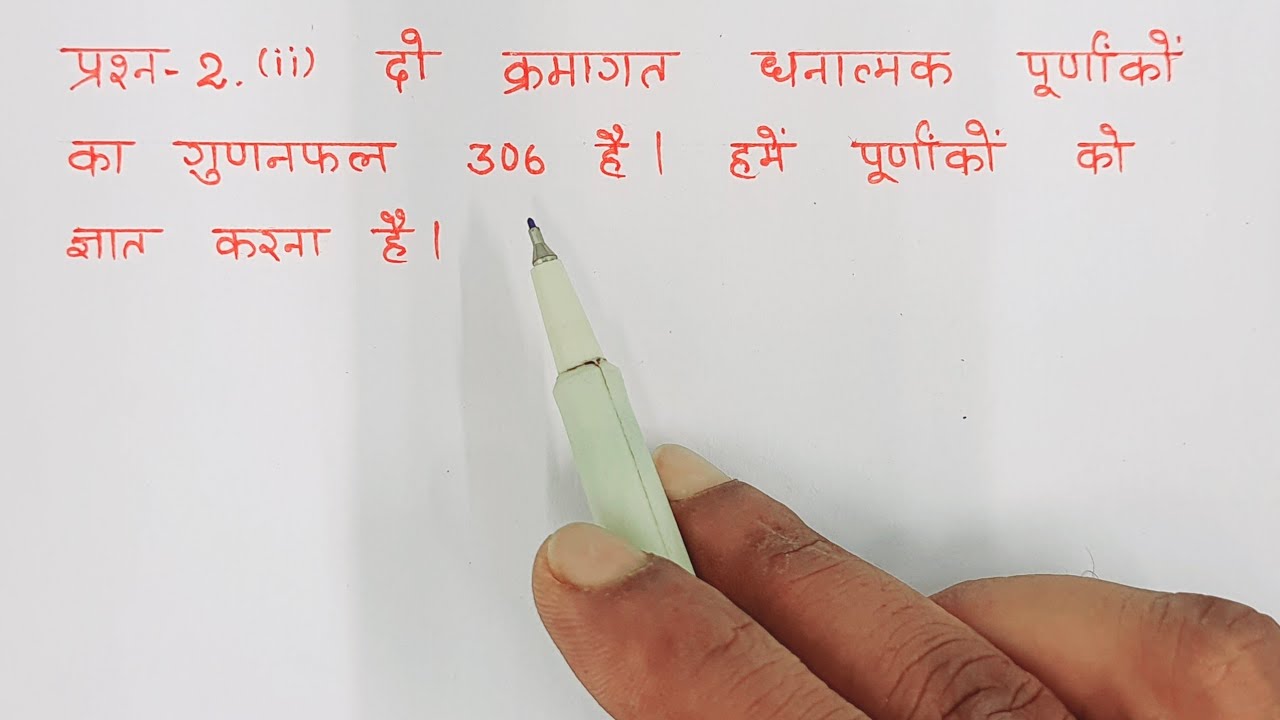 प्रश्न-2.(ii) दो क्रमागत धनात्मक पूर्णांकों
का गुणनफल 306 है। हमें पूर्णांकों को
ज्ञात करना है।